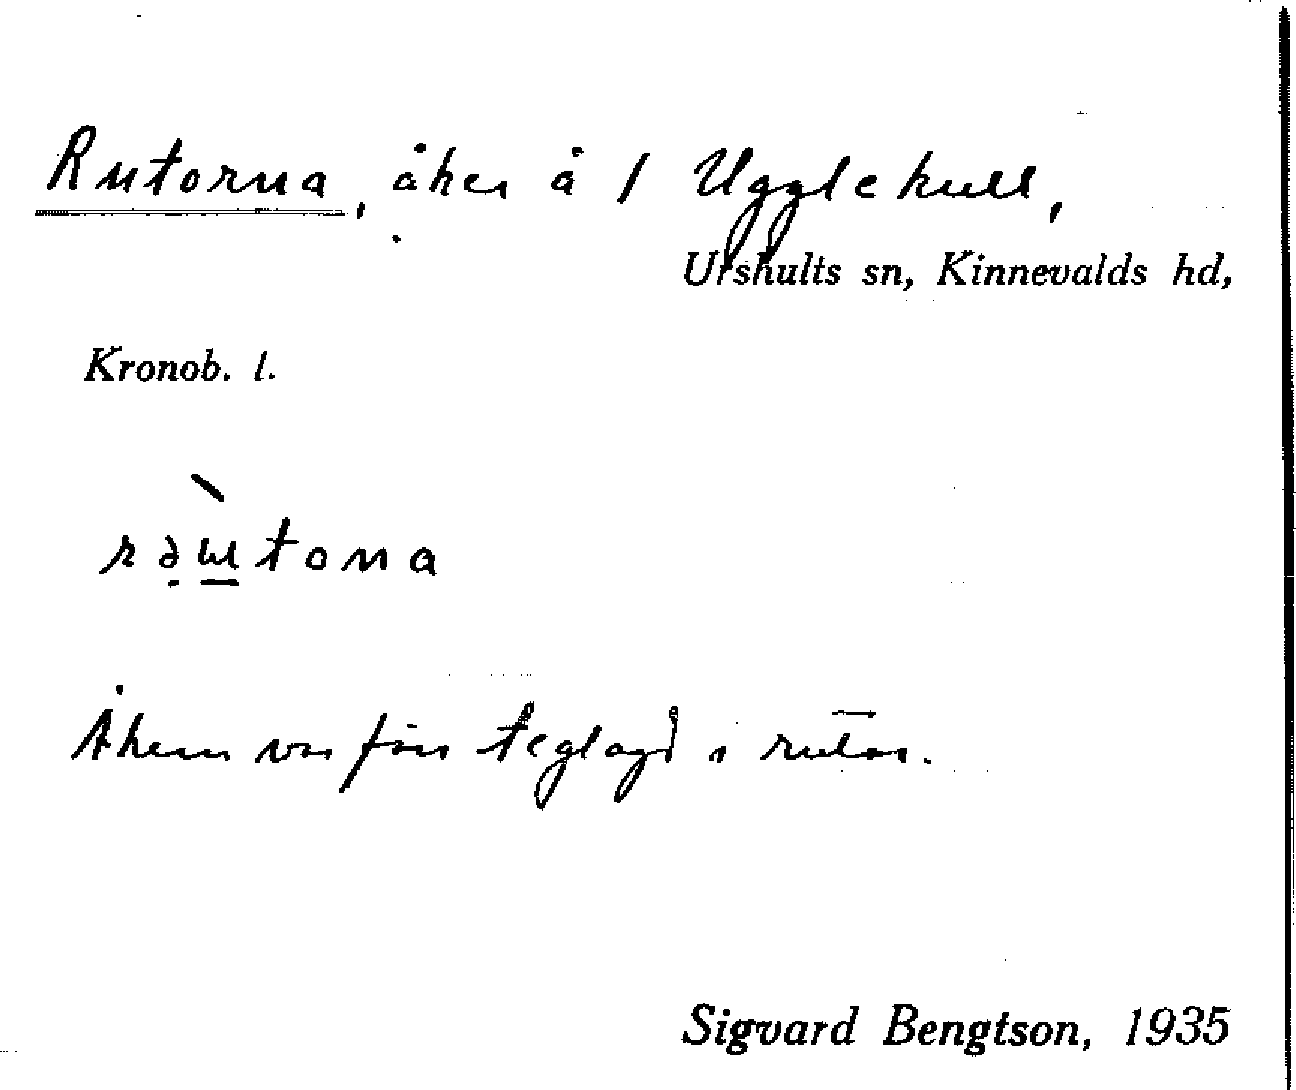 Rutorna, åker å 1 Ugglekull,
Urshults sn, Kinnevalds hd,
Kronob. l.
rəɯtona
Åkern var förr teglagd i rutor.
Sigvard Bengtson, 1935